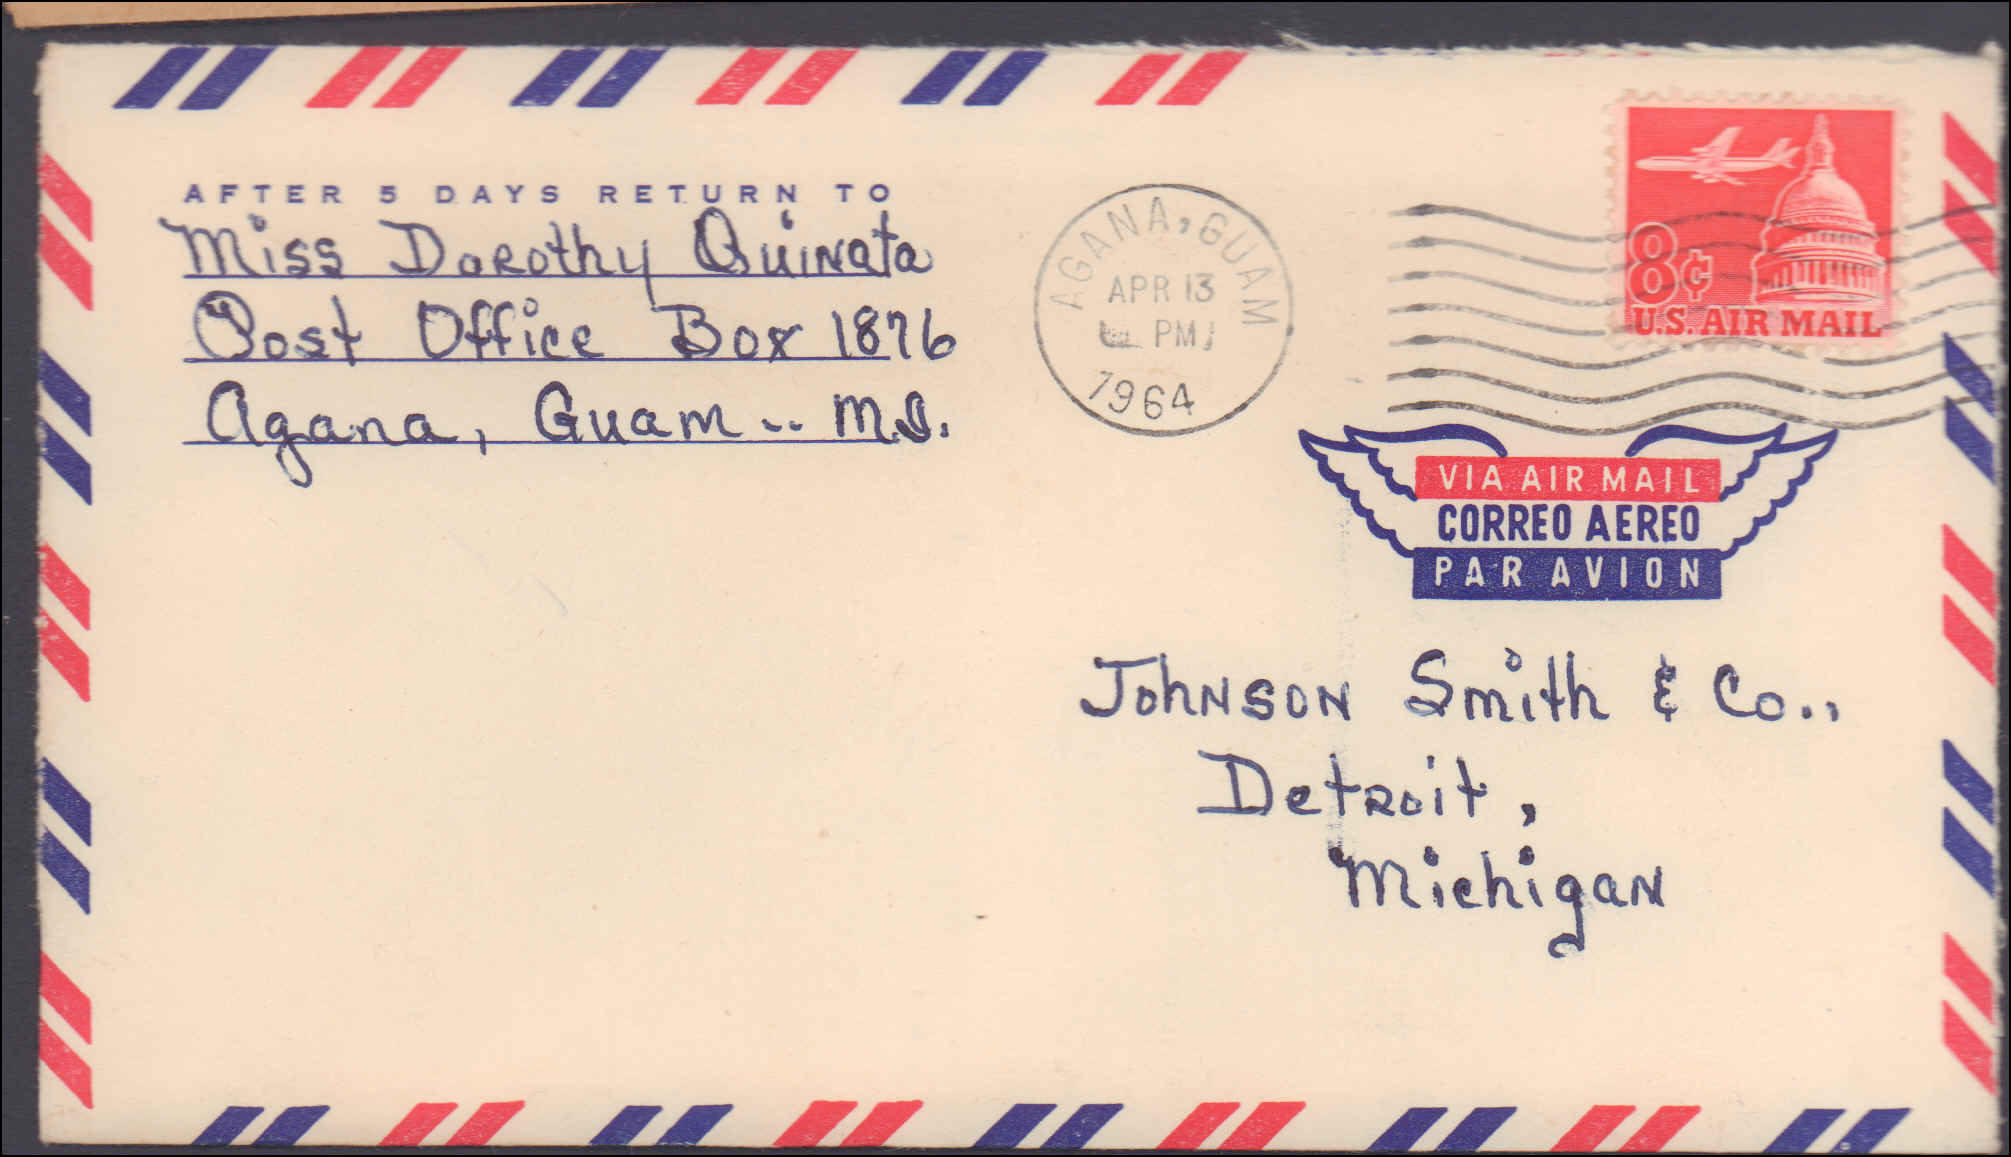 AFTER 5 DAYS RETURN TO
Miss Dorothy Quinata
Post Office Box 1876
Agana, Guam -- M.I.
AGANA, GUAM
APR 13
PM
1964
8¢
U.S. AIR MAIL
VIA AIR MAIL
CORREO AEREO
PAR AVION
Johnson Smith & Co.,
Detroit,
Michigan